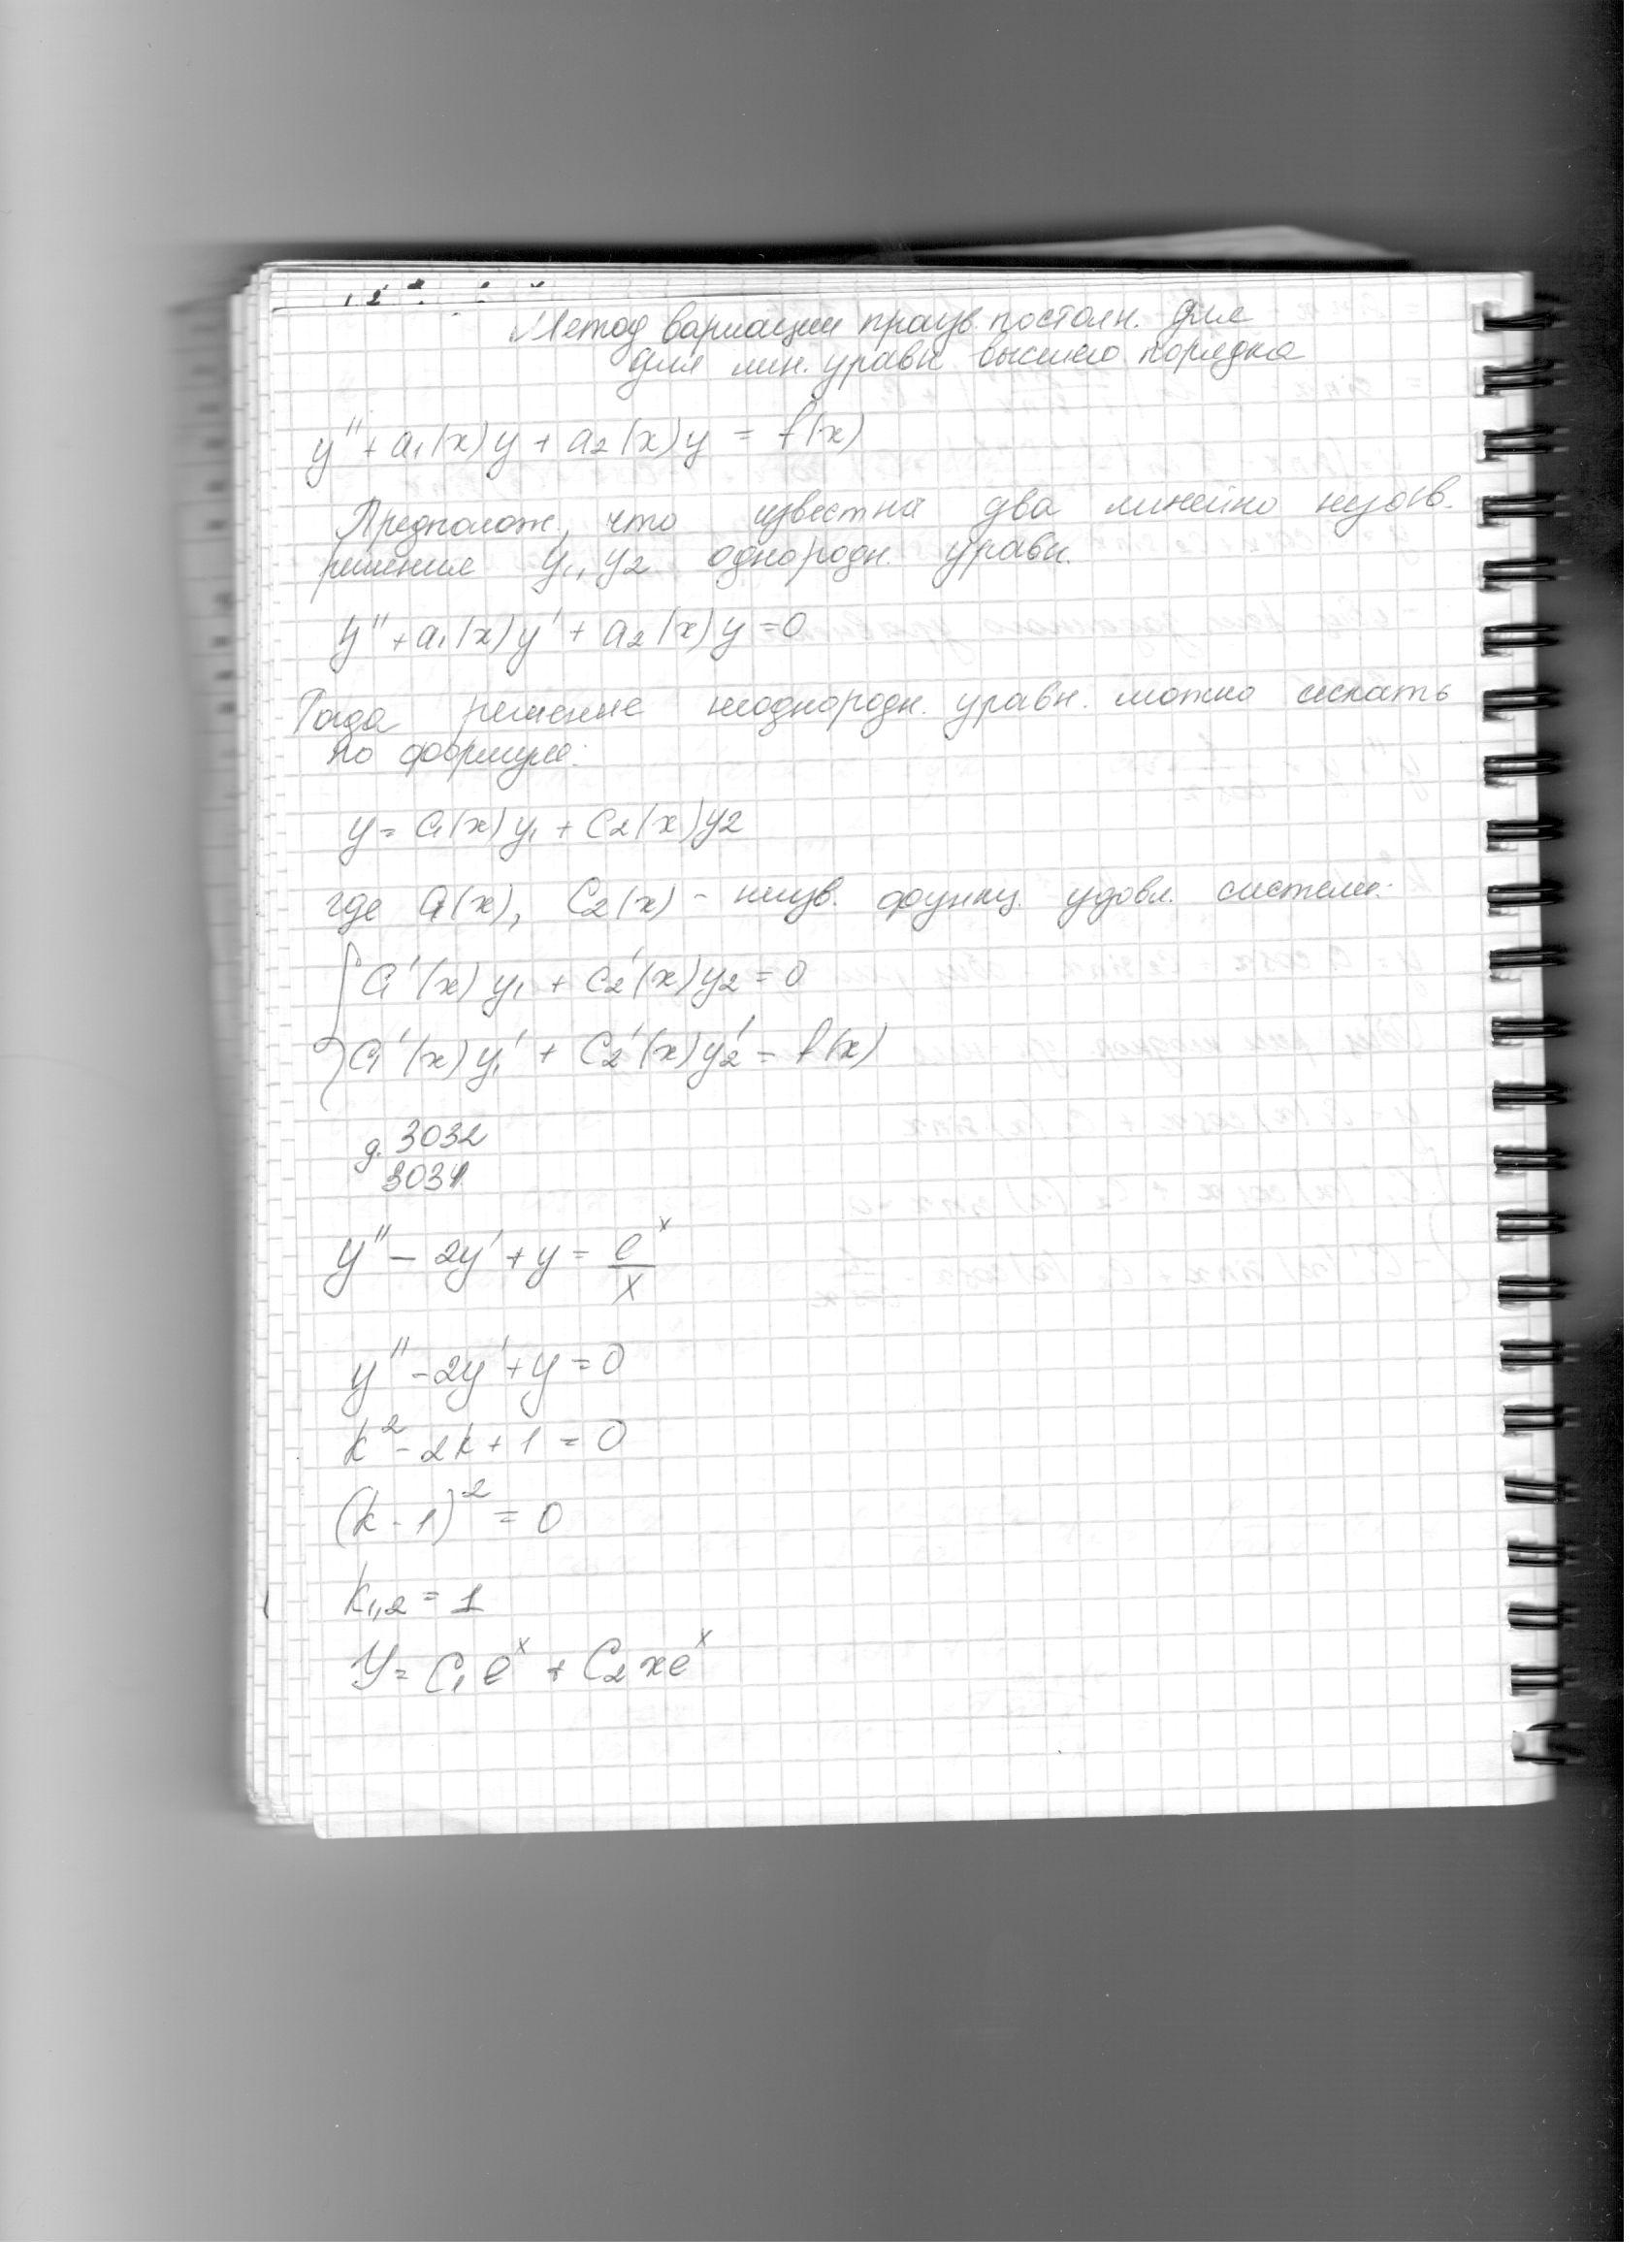 Метод вариации произв. постоян. для
для лин. уравн. высшего порядка
y'' + a₁(x)y + a₂(x)y = f(x)
Предполож, что известна два линейно незав.
решения y₁, y₂ однородн. уравн.
y'' + a₁(x)y' + a₂(x)y = 0
Тогда решение неоднородн. уравн. можно искать
по формуле:
y = C₁(x)y₁ + C₂(x)y₂
где C₁(x), C₂(x) - неизв. функц. удовл. системе:
C₁'(x)y₁ + C₂'(x)y₂ = 0
C₁'(x)y₁' + C₂'(x)y₂' = f(x)
д. 3032
3034
y'' - 2y' + y = eˣ/x
y'' - 2y' + y = 0
k² - 2k + 1 = 0
(k - 1)² = 0
k₁,₂ = 1
Y = C₁eˣ + C₂xeˣ